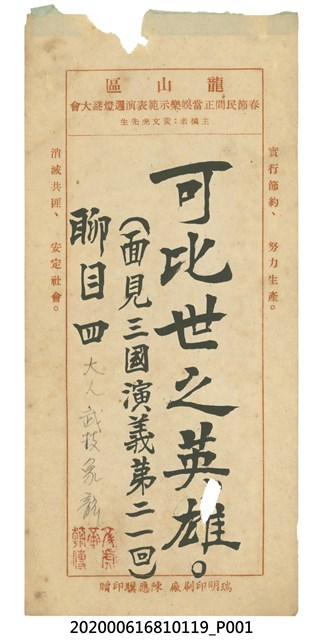 龍山區
春節民間正當娛樂示範表演週燈謎大會
主稿者：黃文虎先生
實行節約、努力生產。
可比世之英雄。
(面見三國演義第二一回)
聊目四
大人 武技 象 龍
消滅共匪、安定社會。
瑞明印刷廠 陳應騏印贈
202000616810119_P001